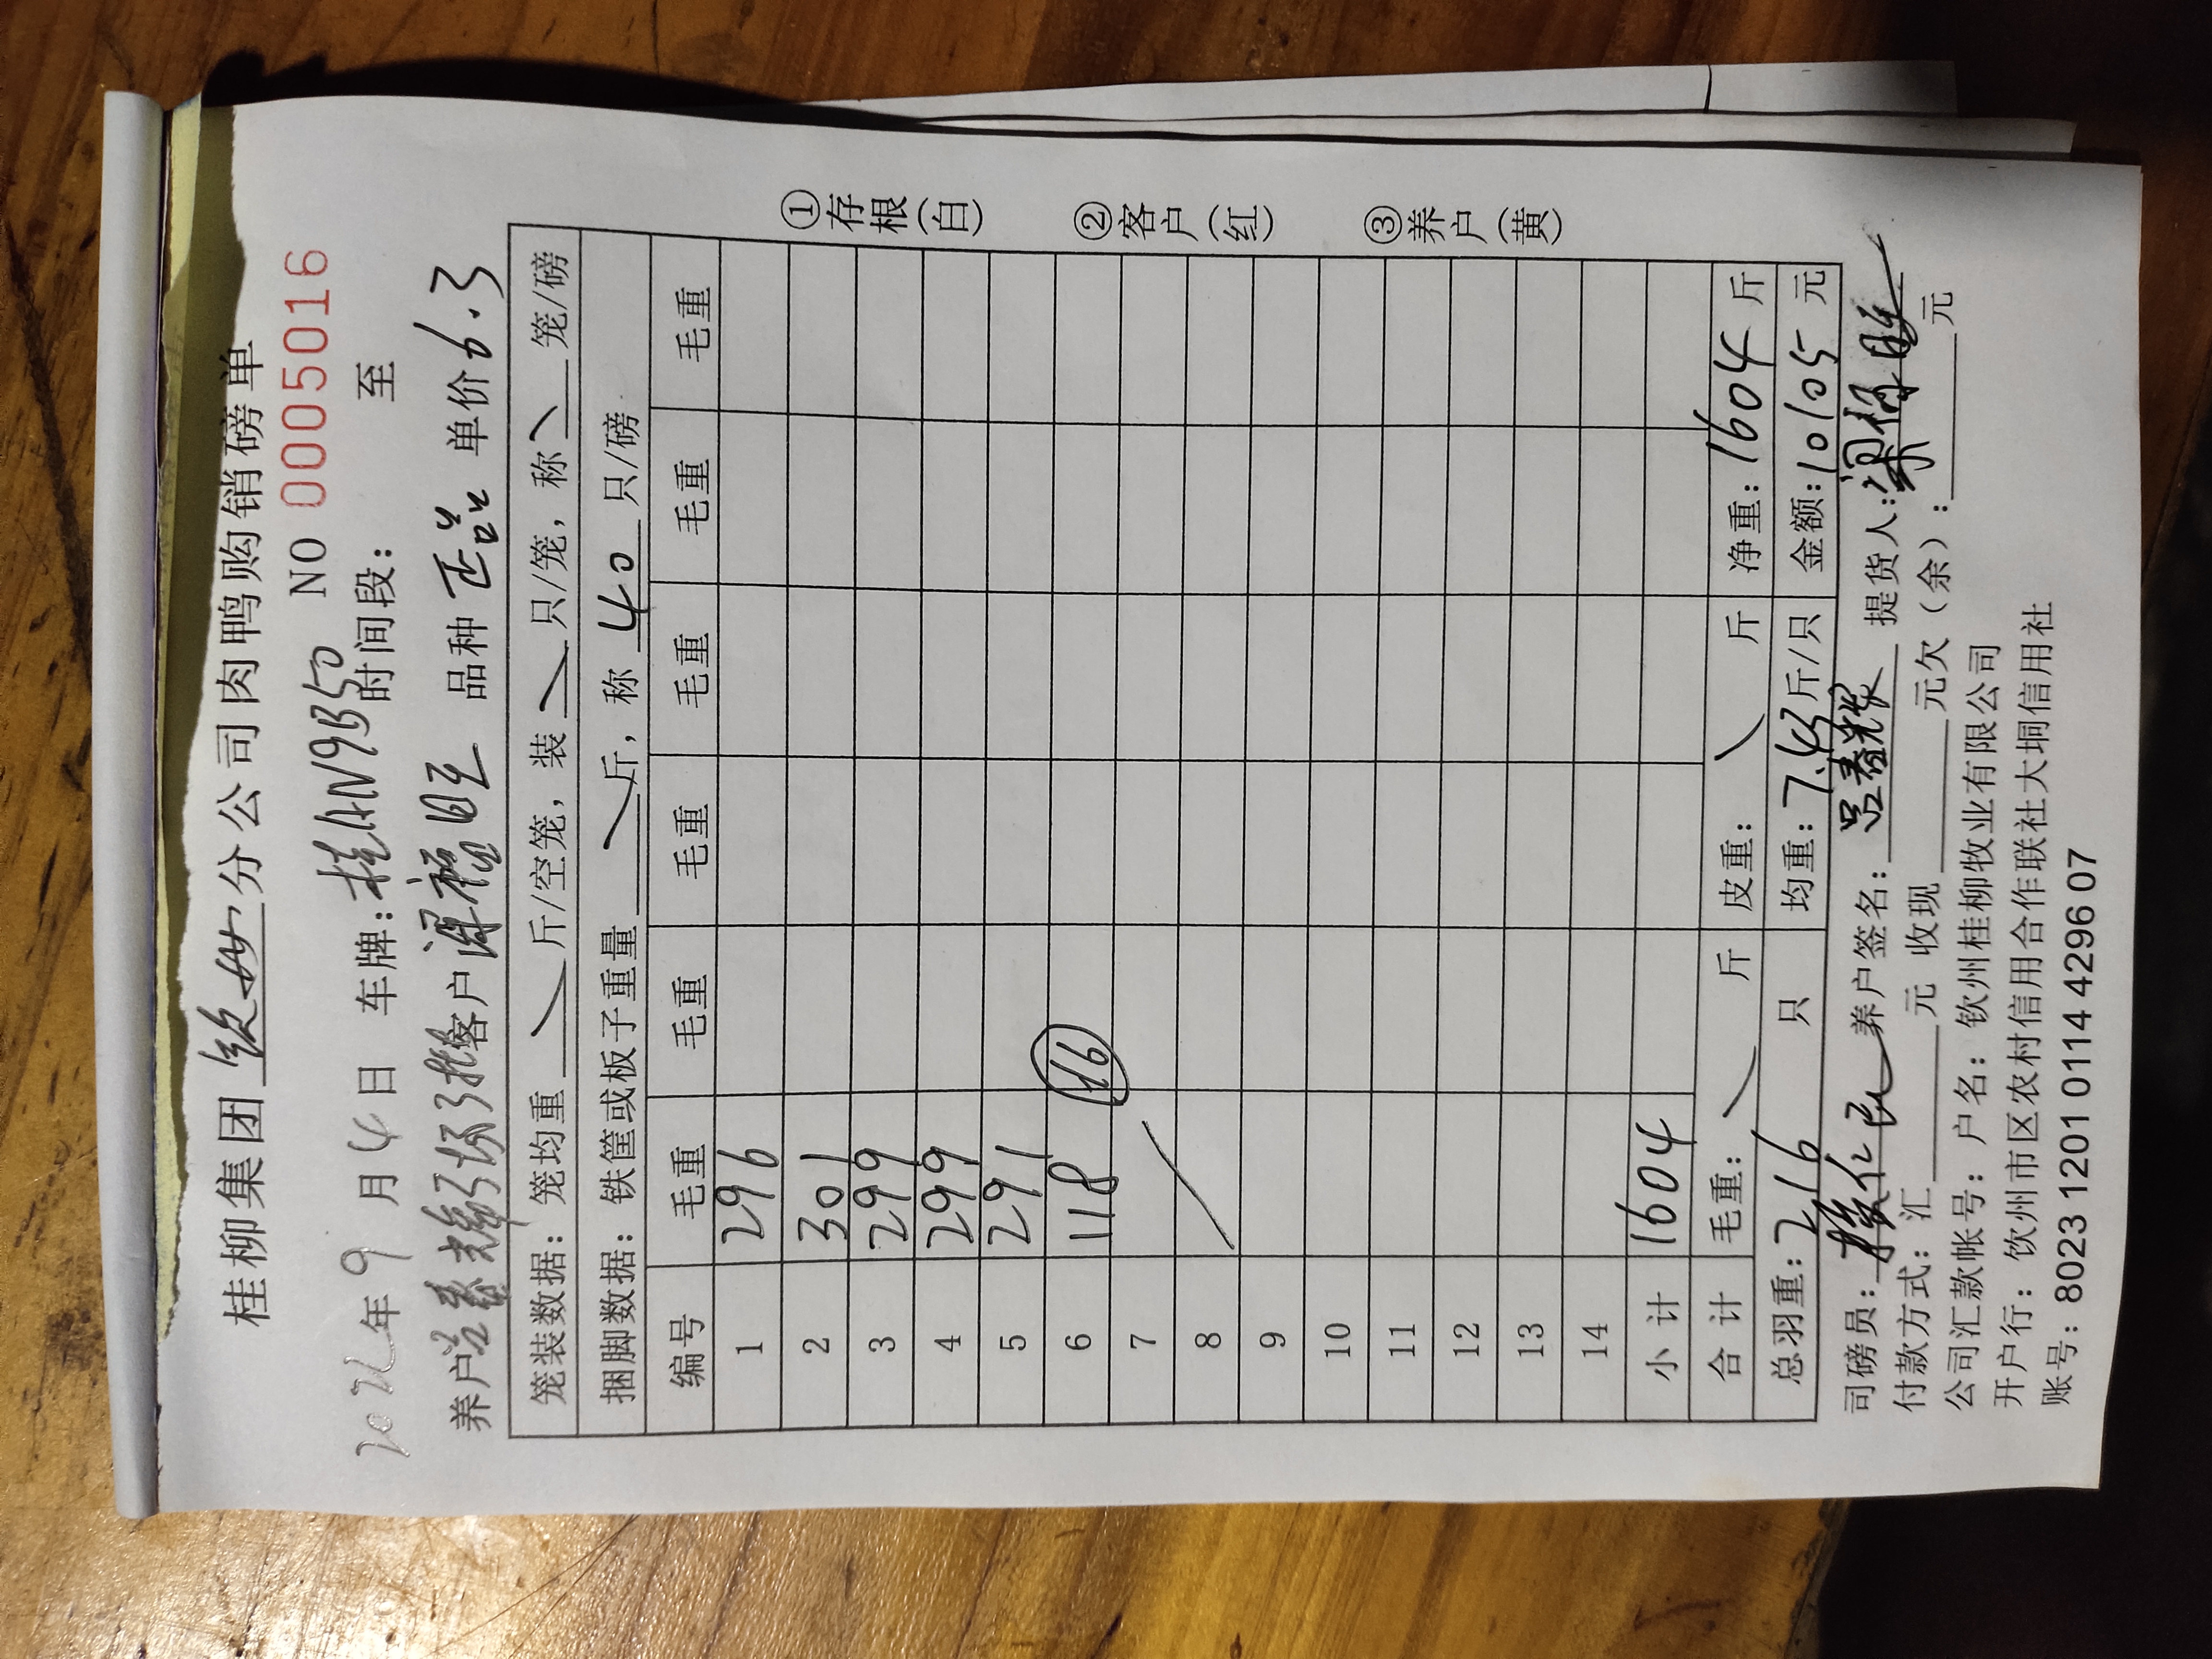 桂柳集团钦州分公司肉鸭购销磅单
NO 0005016
2022年9月4日 车牌:桂AN9B50 时间段: 至
养户 客户 品种 正品 单价6.3
笼装数据: 笼均重 斤/空笼, 装 只/笼, 称 笼/磅
捆脚数据: 铁筐或板子重量 斤, 称 40 只/磅
编号 毛重 毛重 毛重 毛重 毛重 毛重
1 296
2 301
3 299
4 299
5 291
6 118 16
7
8
9
10
11
12
13
14
小计 1604
合计 毛重: 斤 皮重: 斤 净重:1604 斤
总羽重:216 只 均重:7.43斤/只 金额:10105 元
司磅员: 养户签名: 吕春辉 提货人:
付款方式: 汇 元 收现 元欠(余): 元
公司汇款帐号: 户名: 钦州桂柳牧业有限公司
开户行: 钦州市区农村信用合作联社大垌信用社
账号: 8023 1201 0114 4296 07
①存根(白)
②客户(红)
③养户(黄)